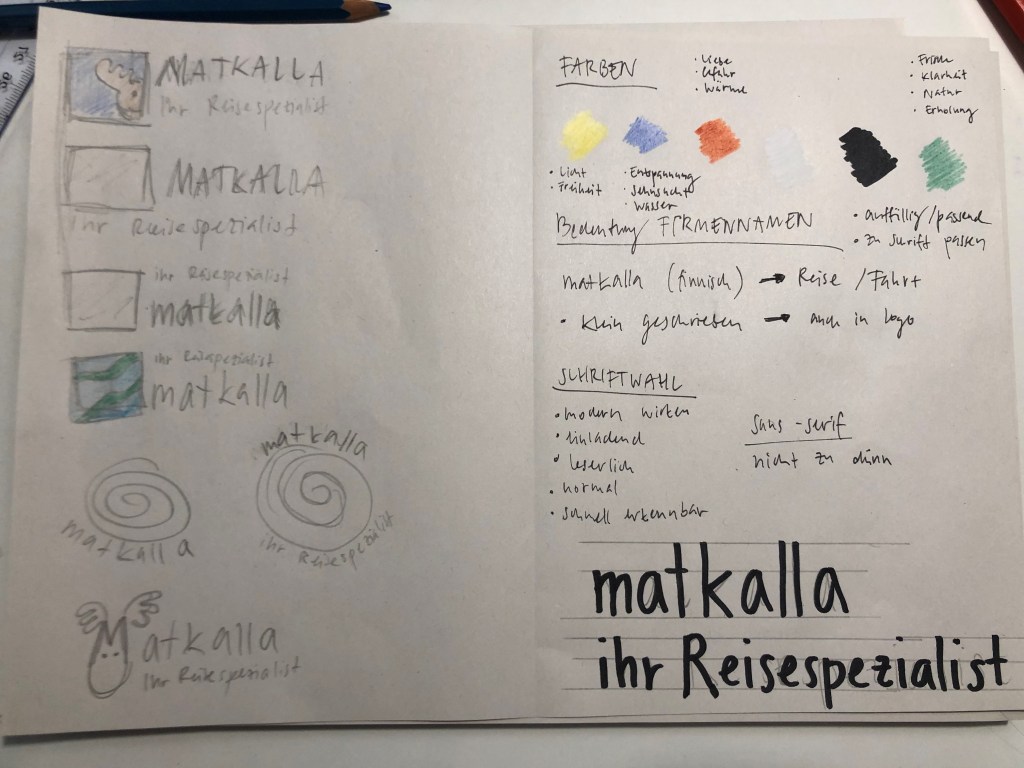 MATKALLA
Ihr Reisespezialist
MATKALLA
Ihr Reisespezialist
ihr Reisespezialist
matkalla
ihr Reisespezialist
matkalla
matkalla
matkalla
ihr Reisespezialist
Matkalla
Ihr Reisespezialist
FARBEN
• Liebe
• Gefahr
• Wärme
• Frische
• Klarheit
• Natur
• Erholung
• Licht
• Freiheit
• Entspannung
• Sehnsucht
• Wasser
• auffällig/passend
• zu Schrift passen
Bedeutung FIRMENNAMEN
matkalla (finnisch) → Reise / Fahrt
• klein geschrieben → auch in Logo
SCHRIFTWAHL
• modern wirken
• einladend
• leserlich
• normal
• schnell erkennbar
sans-serif
nicht zu dünn
matkalla
ihr Reisespezialist